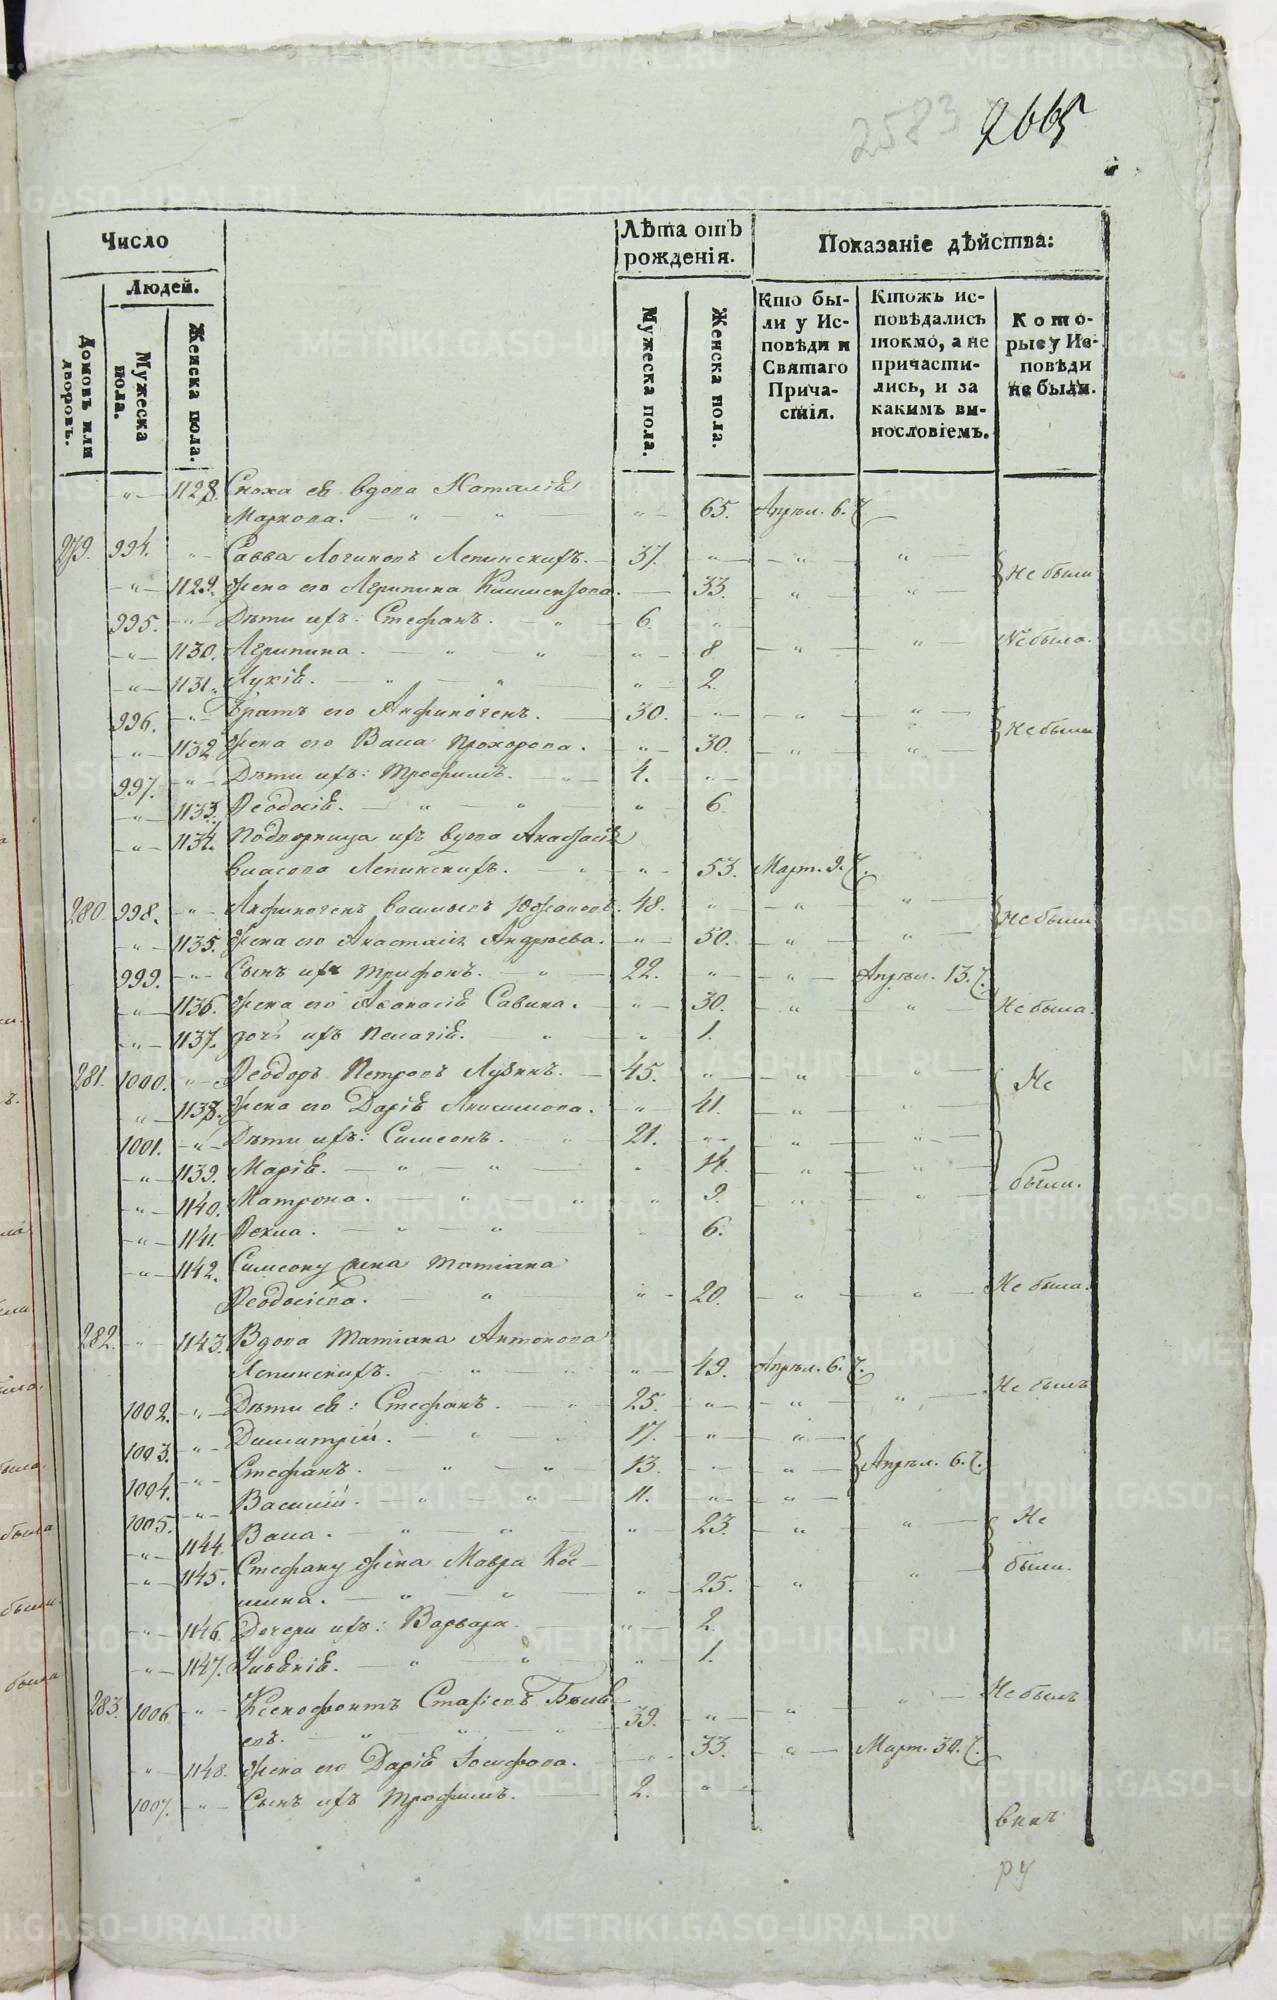 2583 2665
Число
Людей.
Домовъ или дворовъ.
Мужеска пола.
Женска пола.
Лѣта отъ
рожденія.
Мужеска пола.
Женска пола.
Показаніе дѣйства:
Кто бы-
ли у Ис-
повѣди и
Святаго
Прича-
стія.
Ктожъ ис-
повѣдались
токмо, а не
причасти-
лись, и за
какимъ ви-
нословіемъ.
Кото-
рые у Ис-
повѣди
не были.
1128. Сноха ея вдова Наталія
Маркова. 65. Апрѣл. 6.
279. 994. Савва Логиновъ Лепинскихъ. 37.
1129. жена его Агрипина 33. Не были
995. Дѣти ихъ: Стефанъ. 6.
1130. Агрипина. 8 Не была.
1131. Лукія. 2.
996. Братъ его Анфиногенъ. 30.
1132 жена его Васса Прохорова. 30. Не были
997. Дѣти ихъ: Трофимъ. 4.
1133. Ѳеодосія. 6.
1134. Подворница ихъ вдова
Власова Лепинскихъ. 53. Март. 9.
280. 998. Анфиногенъ Васильевъ 48.
1135. жена его Анастасія Андреева. 50. Не были
999. Сынъ ихъ Трифонъ. 22. Апрѣл. 13.
1136. жена его Аѳанасія Савина. 30. Не была.
1137. дочь ихъ Пелагія. 1.
281. 1000. Ѳеодоръ Петровъ 45. Не
1138. жена его Дарія Анисимова. 41.
1001. Дѣти ихъ: Симеонъ. 21.
1139. Марія. 14. были.
1140. Матрона. 9.
1141. Ѳекла. 6.
1142. Симеону жена Татіана
Ѳеодосіева. 20. Не была.
282. 1143. Вдова Татіана Антонова
Лепинскихъ. 49. Апрѣл. 6.
1002. Дѣти ея: Стефанъ. 25. Не былъ
1003. Димитрій. 17.
1004. Стефанъ. 13. Апрѣл. 6.
1005. Василій. 11.
1144 Васса. 23. Не
1145. Стефану жена Мавра Кос-
мина. 25. были.
1146. Дочери ихъ: Варвара. 2.
1147. Уліянія. 1.
283. 1006 Ксенофонтъ Бѣляе-
евъ. 39. Не былъ
1148. жена его Дарія Іосифова. 33. Март. 30.
1007. Сынъ ихъ Трофимъ. 2.
ру